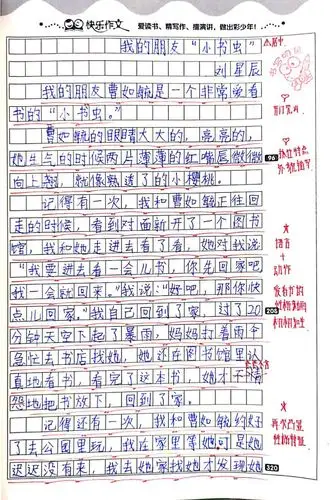 快乐作文
爱读书、精写作、擅演讲，做出彩少年！
我的朋友“小书虫”
居中
刘星辰
我的朋友曹如毓是一个非常爱看
书的“小书虫”。
曹如毓的眼睛大大的，亮亮的，
她生气的时候两片薄薄的红嘴唇微微
96
向上翘，就像熟透了的小樱桃。
记得有一次，我和曹如毓正往回
走的时候，看到对面新开了一个图书
馆，我和她走进去看了看，她对我说
“我要进去看一会儿书，你先回家吧
我一会就回来。”我说：“好吧，那你快
点儿回家。”我自己回到了家，过了20
208
分钟天空下起了暴雨，妈妈打着雨伞
急忙去书店找她，她还在图书馆里认
真地看书，看完了这本书，她才不情
怨地把书放下，回到了家。
记得有一次，我和曹如毓约好
了去公园里玩，我在家里等她可是她
迟迟没有来，我去她家找她才发现她
320